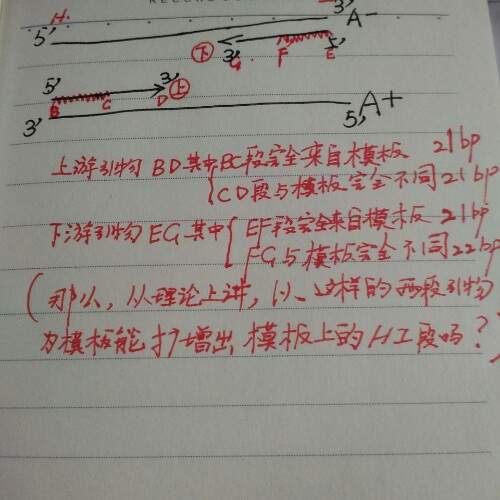 RECOR
H
5'
3'
A-
下
3'
G
F
5'
E
5'
3'
上
B
C
D
3'
5'
A+
上游引物 BD 其中 BC段完全来自模板 21bp
CD段与模板完全不同 21bp
下游引物 EG 其中 EF段完全来自模板 21bp
FG与模板完全不同 22bp
(那么,从理论上讲,以这样的两段引物
为模板能扩增出模板上的HI段吗?)